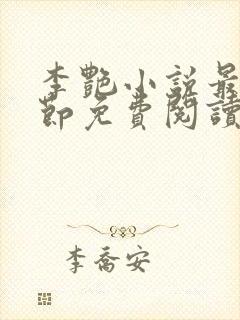 李艷小說最
節免費閱讀
李喬安